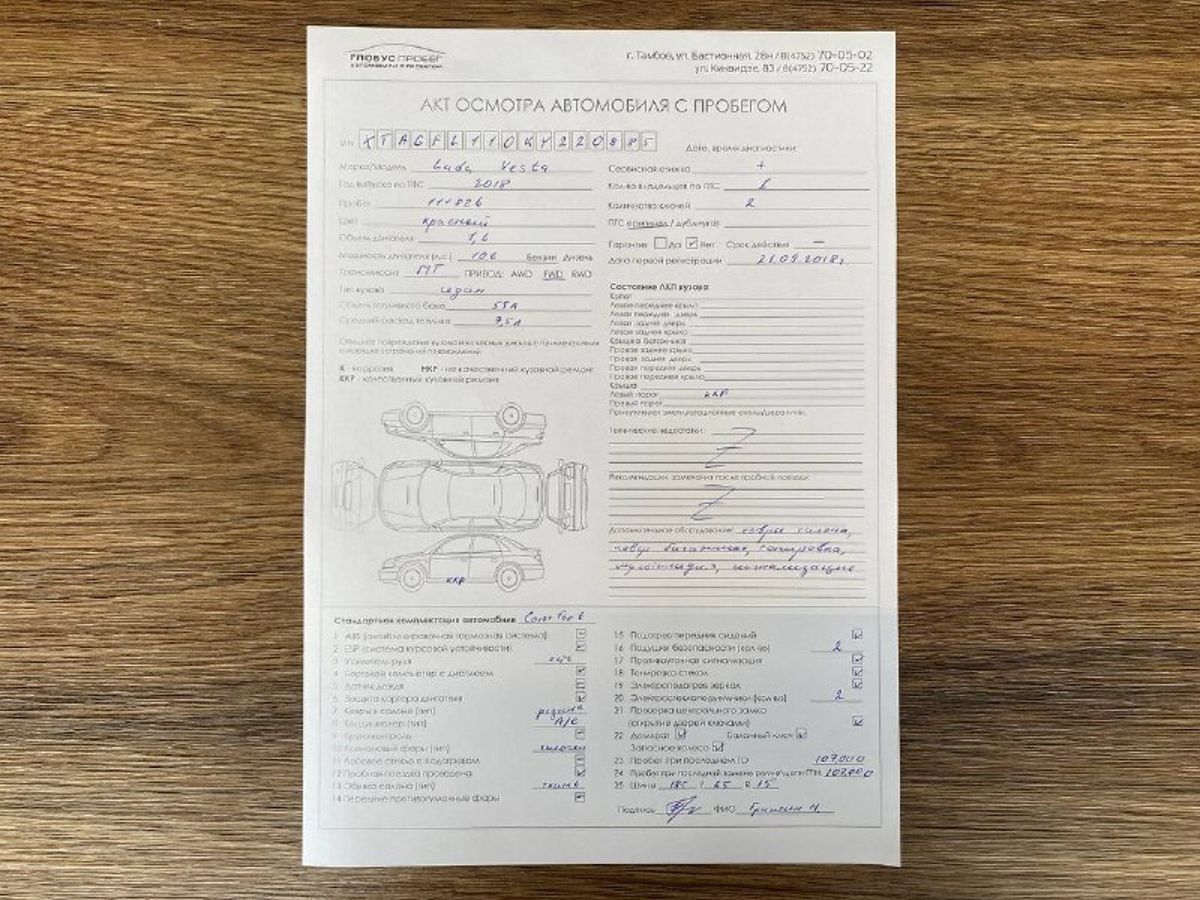 ГЛОБУС ПРОБЕГ
АВТОМОБИЛИ С ПРОБЕГОМ
г. Тамбов, ул. Бастионная, 28н / 8(4752) 70-05-02
ул. Киквидзе, 83 / 8(4752) 70-05-22
АКТ ОСМОТРА АВТОМОБИЛЯ С ПРОБЕГОМ
VIN XTAGFL110KY220885
Марка/Модель Lada Vesta
Год выпуска по ПТС 2018
Пробег 111826
Цвет красный
Объем двигателя 1,6
Мощность двигателя (л.с.) 106 Бензин Дизель
Трансмиссия МТ ПРИВОД: AWD FWD RWD
Тип кузова седан
Объем топливного бака 55л
Средний расход топлива
К - коррозия НКР - не качественный кузовной ремонт
ККР - качественный кузовной ремонт
ККР
Дата, время диагностики:
Сервисная книжка +
Кол-во владельцев по ПТС 1
Количество ключей 2
ПТС оригинал / дубликат
Гарантия Да Нет Срок действия —
Дата первой регистрации 21.09.2018г
Состояние ЛКП кузова:
Капот
Левое переднее крыло
Левая передняя дверь
Левая задняя дверь
Левое заднее крыло
Крышка багажника
Правое заднее крыло
Правая задняя дверь
Правая передняя дверь
Правое переднее крыло
Крыша
Левый порог ККР
Правый порог
Присутствуют эксплуатационные сколы/царапины
Технические недостатки:
Z
Рекомендации, замечания после пробной поездки:
Z
Дополнительное оборудование: ковры салона,
ковер багажника, тонировка,
сигнализация
Стандартная комплектация автомобиля Comfort
1 ABS (антиблокировочная тормозная система)
2 ESP (система курсовой устойчивости)
3 Усилитель руля эур
4 Бортовой компьютер с дисплеем
5 Датчик дождя
6 Защита картера двигателя
7 Ковры в салоне (тип) резина
8 Кондиционер (тип) A/C
9 Круиз-контроль
10 Ксеноновые фары (тип)
11 Лобовое стекло с подогревом
12 Пробная поездка проведена
13 Обивка салона (тип) ткань
14 Передние противотуманные фары
15 Подогрев передних сидений
16 Подушки безопасности (кол-во) 2
17 Противоугонная сигнализация
18 Тонировка стекол
19 Электроподогрев зеркал
20 Электростеклоподъемники (кол-во) 2
21 Проверка центрального замка
(открытие дверей ключами)
22 Домкрат Балонный ключ
Запасное колесо
23 Пробег при последнем ТО 107.000
24 Пробег при последней замене ремня/цепи ГРМ 107.000
25 Шины 185 / 65 R 15
Подпись ФИО